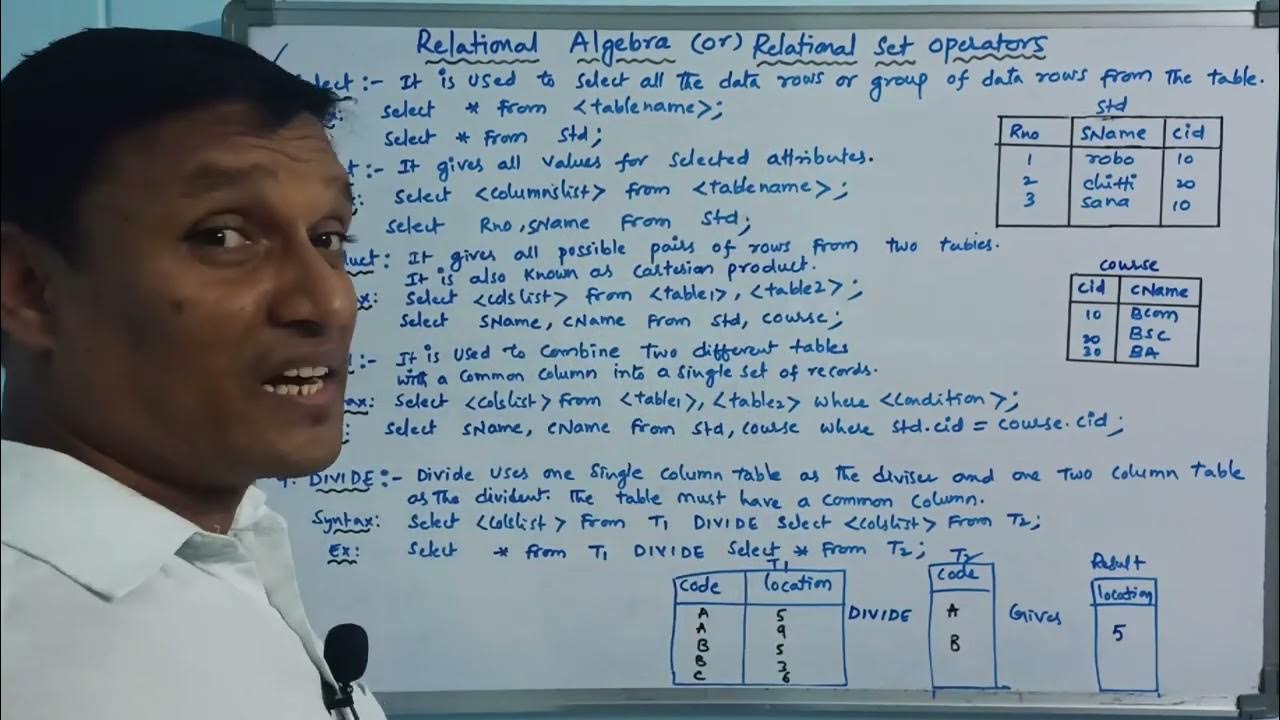 Relational Algebra (or) Relational Set operators
:- It is used to select all the data rows or group of data rows from the table.
Select * from <tablename>;
Select * from Std;
Std
Rno SName cid
1 robo 10
2 chitti 20
3 sana 10
:- It gives all values for selected attributes.
Select <columnslist> from <tablename>;
Select Rno, SName from Std;
: It gives all possible pairs of rows from two tables.
It is also known as cartesian product.
Select <colslist> from <table1>, <table2>;
Select SName, CName from Std, course;
course
cid CName
10 Bcom
20 BSC
30 BA
:- It is used to combine two different tables
with a common column into a single set of records.
Select <colslist> from <table1>, <table2> where <condition>;
Select SName, CName from Std, course where Std.cid = course.cid;
DIVIDE:- Divide uses one single column table as the diviser and one two column table
as the divident. The table must have a common column.
Syntax: Select <colslist> from T1 DIVIDE Select <colslist> from T2;
Ex: Select * from T1 DIVIDE Select * from T2;
T1
Code location
A 5
A 9
B 5
B 3
C 6
DIVIDE
T2
Code
A
B
Gives
Result
location
5